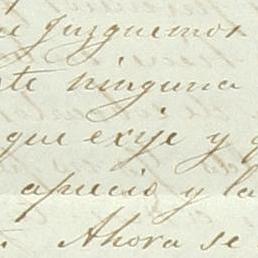 juzguemos
te ninguna
que exije y
aprecio y la
Ahora se